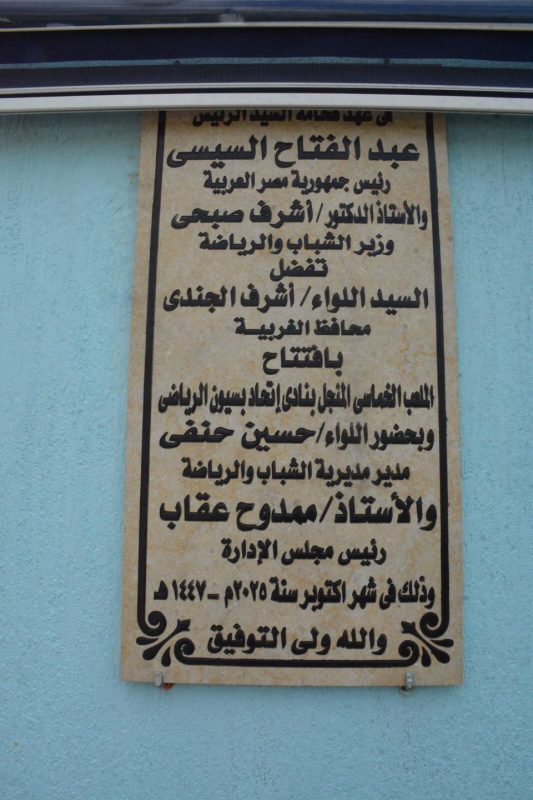 فى عهد فخامة السيد الرئيس
عبد الفتاح السيسى
رئيس جمهورية مصر العربية
والأستاذ الدكتور/أشرف صبحى
وزير الشباب والرياضة
تفضل
السيد اللواء/ أشرف الجندى
محافظ الغربية
بافتتاح
الملعب الخماسى المنجل بنادى إتحاد بسيون الرياضى
وبحضور اللواء/حسين حنفى
مدير مديرية الشباب والرياضة
والأستاذ/ممدوح عقاب
رئيس مجلس الإدارة
وذلك فى شهر اكتوبر سنة ٢٠٢٥م -١٤٤٧ هـ
والله ولى التوفيق